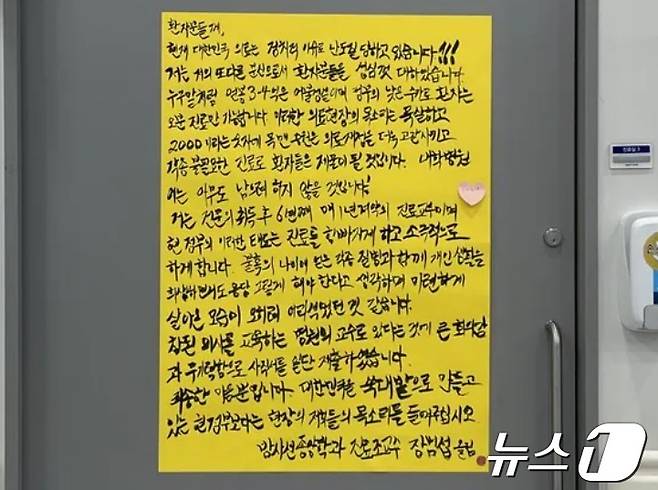 환자분들께,
현재 대한민국 의료는 정치적 이유로 난도질 당하고 있습니다!!!
저는 저의 또다른 분신으로서 환자분들을 성심껏 대하였습니다.
누구말처럼 연봉 3-4억은 어불성설이며 정부의 낮은 수가로 환자는
5분 진료만 가능합니다. 이러한 의료현장의 목소리는 묵살하고
2000이라는 숫자에 목맨 의료재정을 더욱 고갈시키고
각종 불필요한 진료로 환자들은 제물이 될 것입니다. 대학병원
에는 아무도 남으려 하지 않을 것입니다!
저는 전문의 취득 후 6번째 매 1년 계약의 진료교수이며
현 정부의 이러한 태도는 진료를 힘빠지게 하고 소극적으로
하게 합니다. 불혹의 나이에 얻은 각종 질병과 함께 개인 생활을
희생하면서도 응당 그렇게 해야 한다고 생각하며 미련하게
살아온 모습이 오히려 어리석었던 것 같습니다.
참된 의사를 교육하는 병원의 교수로 있다는 것에 큰 회의감
과 무기력함으로 사직서를 일단 제출하였습니다.
죄송한 마음뿐입니다. 대한민국을 쑥대밭으로 만들고
있는 현 정부보다는 현장의 저희들의 목소리를 들어주십시오.
방사선종양학과 진료조교수 장범섭 올림
진료실 3
뉴스1